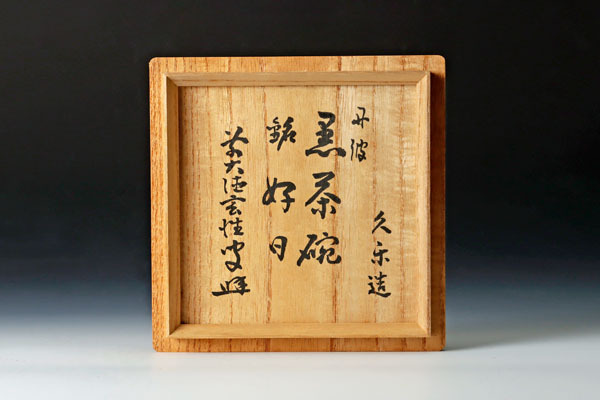 丹波
久楽造
黒茶碗
銘 好日
前大徳玄性叟